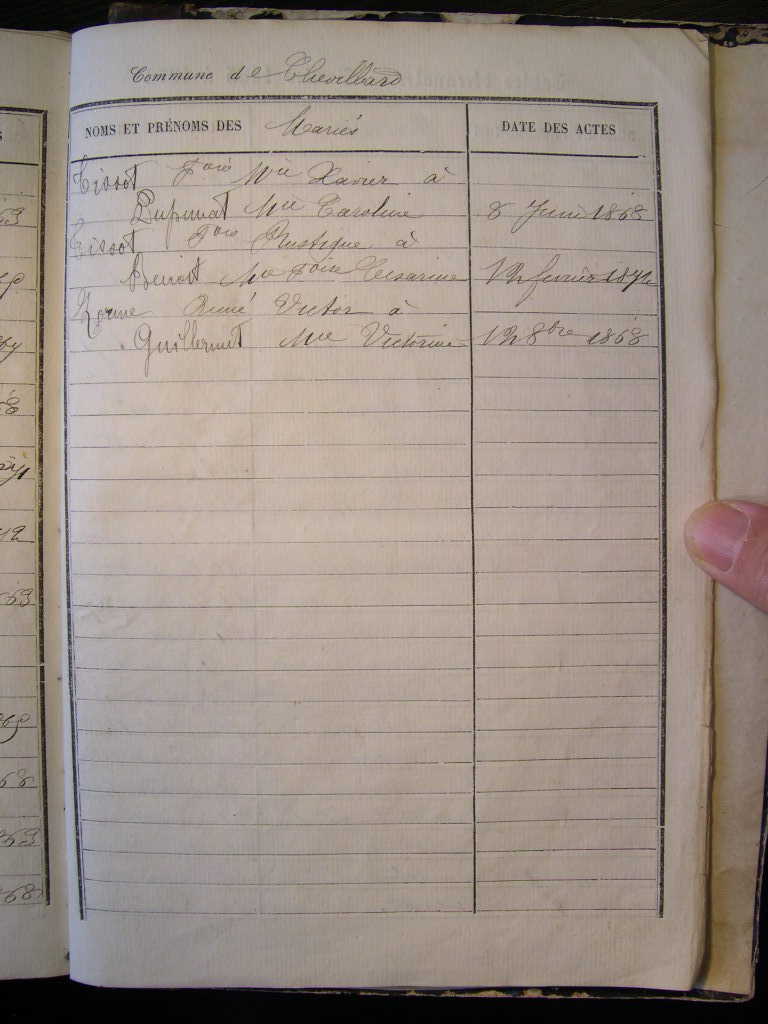 Commune de Chevillard
NOMS ET PRÉNOMS DES Mariés
DATE DES ACTES
Tissot fois Mie Xavier à
Mie Caroline 8 Juin 1868
Tissot fois Rustique à
Benoit Mie foise Césarine 12 février 1872
Aimé Victor à
Guillermet Mie Victorine 12 8bre 1868
53
68
12
63
68
63
68